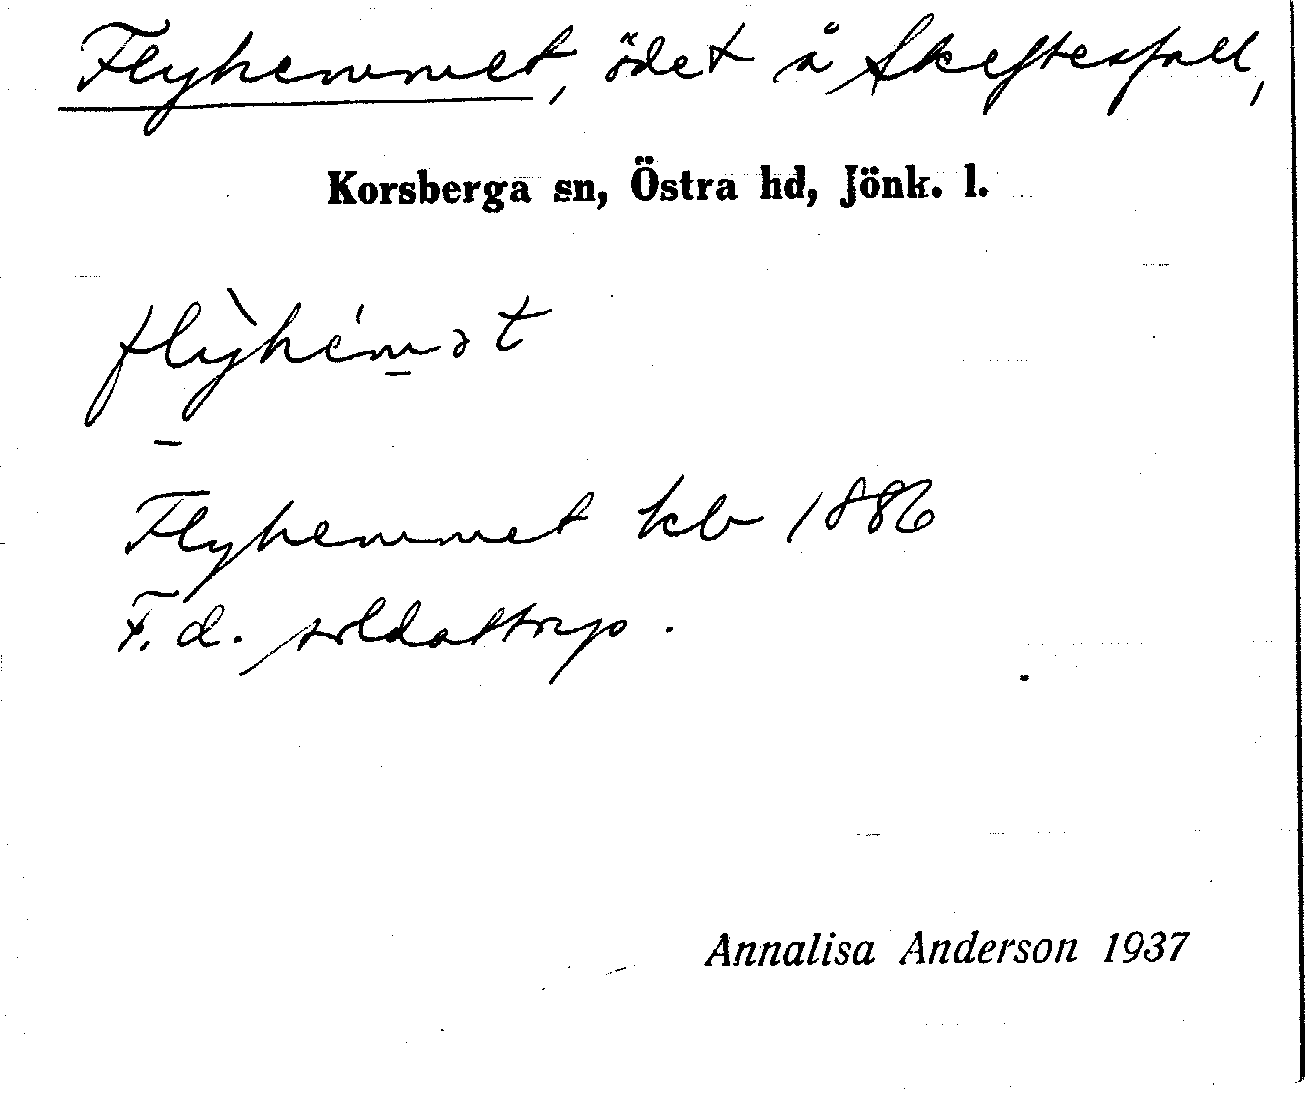 Flyhemmet, ödet å Skeftesfall,
Korsberga sn, Östra hd, Jönk. l.
flỳ̠hém̠ət
Flyhemmet kb 1886
F.d. soldattorp.
Annalisa Anderson 1937